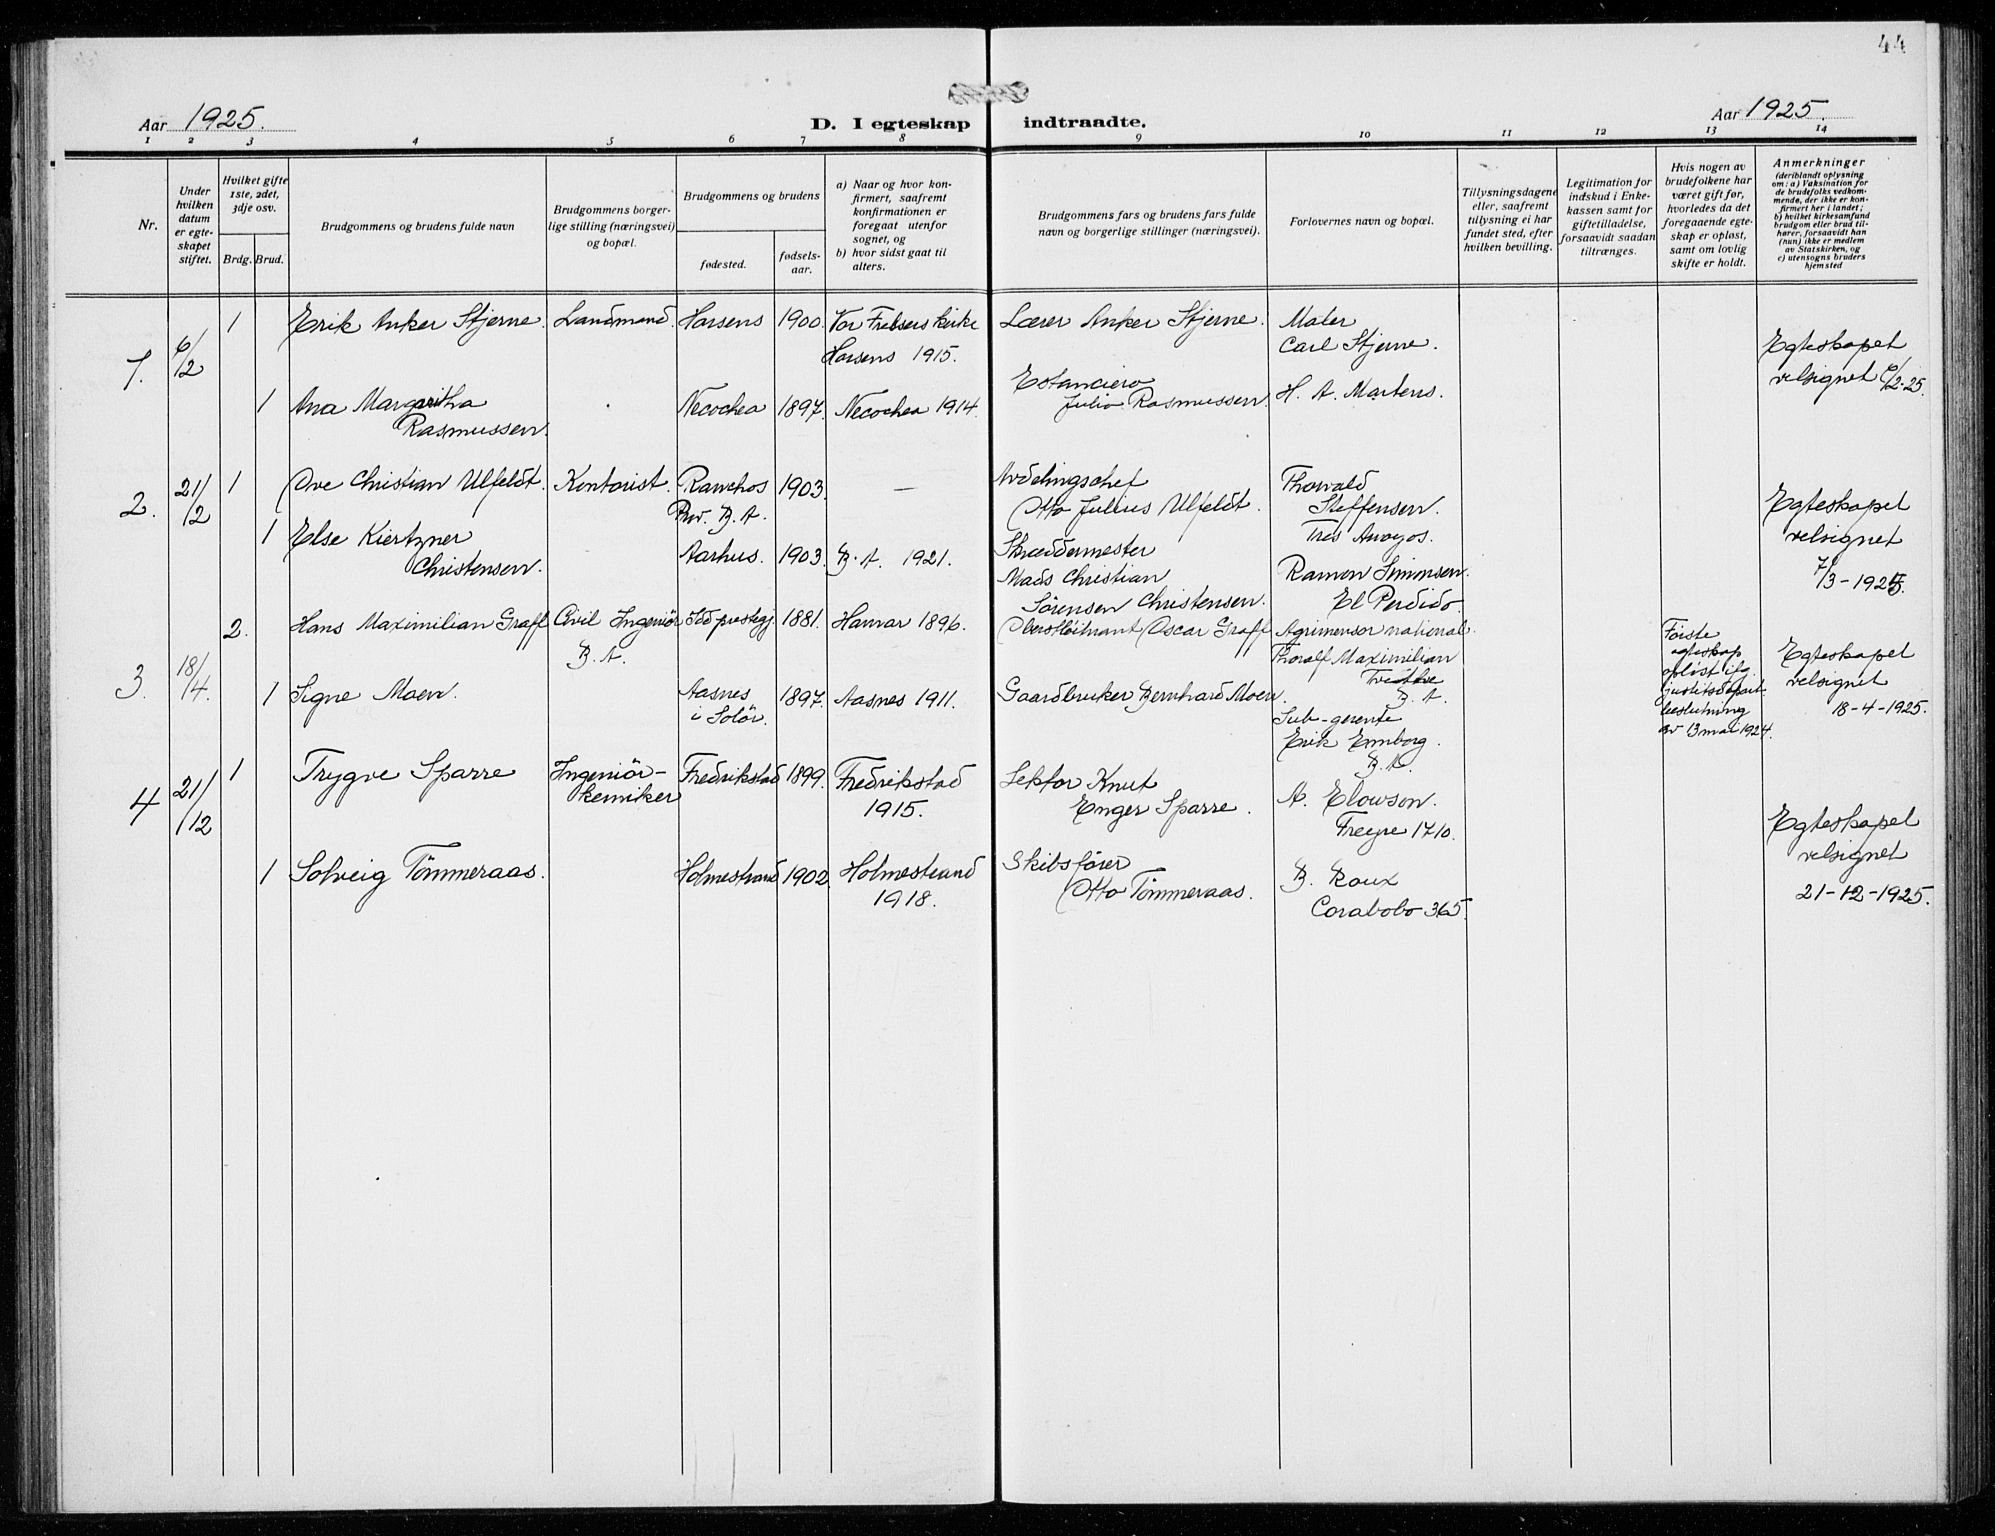 44
Aar 1925.
D. I egteskap indtraadte.
Aar 1925.
1 2 3 4 5 6 7 8 9 10 11 12 13 14
Nr.
Under
hvilken
datum
er egte-
skapet
stiftet.
Hvilket gifte
1ste, 2det,
3dje osv.
Brdg. Brud.
Brudgommens og brudens fulde navn
Brudgommens borger-
lige stilling (næringsvei)
og bopæl.
Brudgommens og brudens
fødested.
fødsels-
aar.
a) Naar og hvor kon-
firmert, saafremt
konfirmationen er
foregaat utenfor
sognet, og
b) hvor sidst gaat til
alters.
Brudgommens fars og brudens fars fulde
navn og borgerlige stillinger (næringsvei).
Forlovernes navn og bopæl.
Tillysningsdagene
eller, saafremt
tillysning ei har
fundet sted, efter
hvilken bevilling.
Legitimation for
indskud i Enke-
kassen samt for
giftetilladelse,
forsaavidt saadan
tiltrænges.
Hvis nogen av
brudefolkene har
været gift før,
hvorledes da det
foregaaende egte-
skap er opløst,
samt om lovlig
skifte er holdt.
Anmerkninger
(deriblandt oplysning
om: a) Vaksination for
de brudefolks vedkom-
mende, der ikke er kon-
firmert her i landet;
b) hvilket kirkesamfund
brudgom eller brud til-
hører, forsaavidt han
(hun) ikke er medlem
av Statskirken, og
c) utensogns bruders
hjemsted
1. 6/2 1
Erik Anker Stjerne.
Landmand.
Horsens
1900.
Vor Frelsers kirke
Horsens 1915.
Lærer Anker Stjerne.
Maler
Carl Stjerne.
Egteskapet
velsignet 6/2-25.
1
Ana Margaritha
Rasmussen.
Necochea
1897.
Necochea 1914
Estanciero
Julio Rasmussen.
H. A. Martens.
2. 21/2 1
Ove Christian Ulfeldt.
Kontorist.
Ranchos
Prov. B. A.
1903.
—
Avdelingschef
Otto Julius Ulfeldt.
Thorvald
Steffensen.
Tres Arroyos.
Egteskapet
velsignet
7/3-1925.
1
Else Kiertzner
Christensen.
Aarhus.
1903.
B. A. 1921.
Skræddermester
Mads Christian
Sörensen Christensen.
Ramon Simonsen.
El Perdido.
3. 18/4. 2.
Hans Maximilian Graff
Civil Ingeniör
B. A.
Idd prestegj.
1881.
Hamar 1896.
Oberstlöitnant Oscar Graff
Agrimensor national
Thoralf Maximilian
B. A.
Förste
egteskap
oplöst ifg.
justitsdepart.
beslutning
av 13 mai 1924.
Egteskapet
velsignet
18-4-1925.
1
Signe Moen.
Aasnes
i Solör.
1897.
Aasnes 1911.
Gaardbruker Bernhard Moen.
Sub-gerente
Erik Ennborg.
B. A.
4 21/12 1
Trygve Sparre
Ingeniör-
kemiker
Fredrikstad
1899.
Fredrikstad
1915.
Lektor Knut
Enger Sparre.
A. Elowson.
Freyre 1710.
Egteskapet
velsignet
21-12-1925.
1
Solveig Tömmeraas.
Holmestrand
1902.
Holmestrand
1918.
Skibsförer
Otto Tömmeraas.
B. Roux
Carabobo 365.